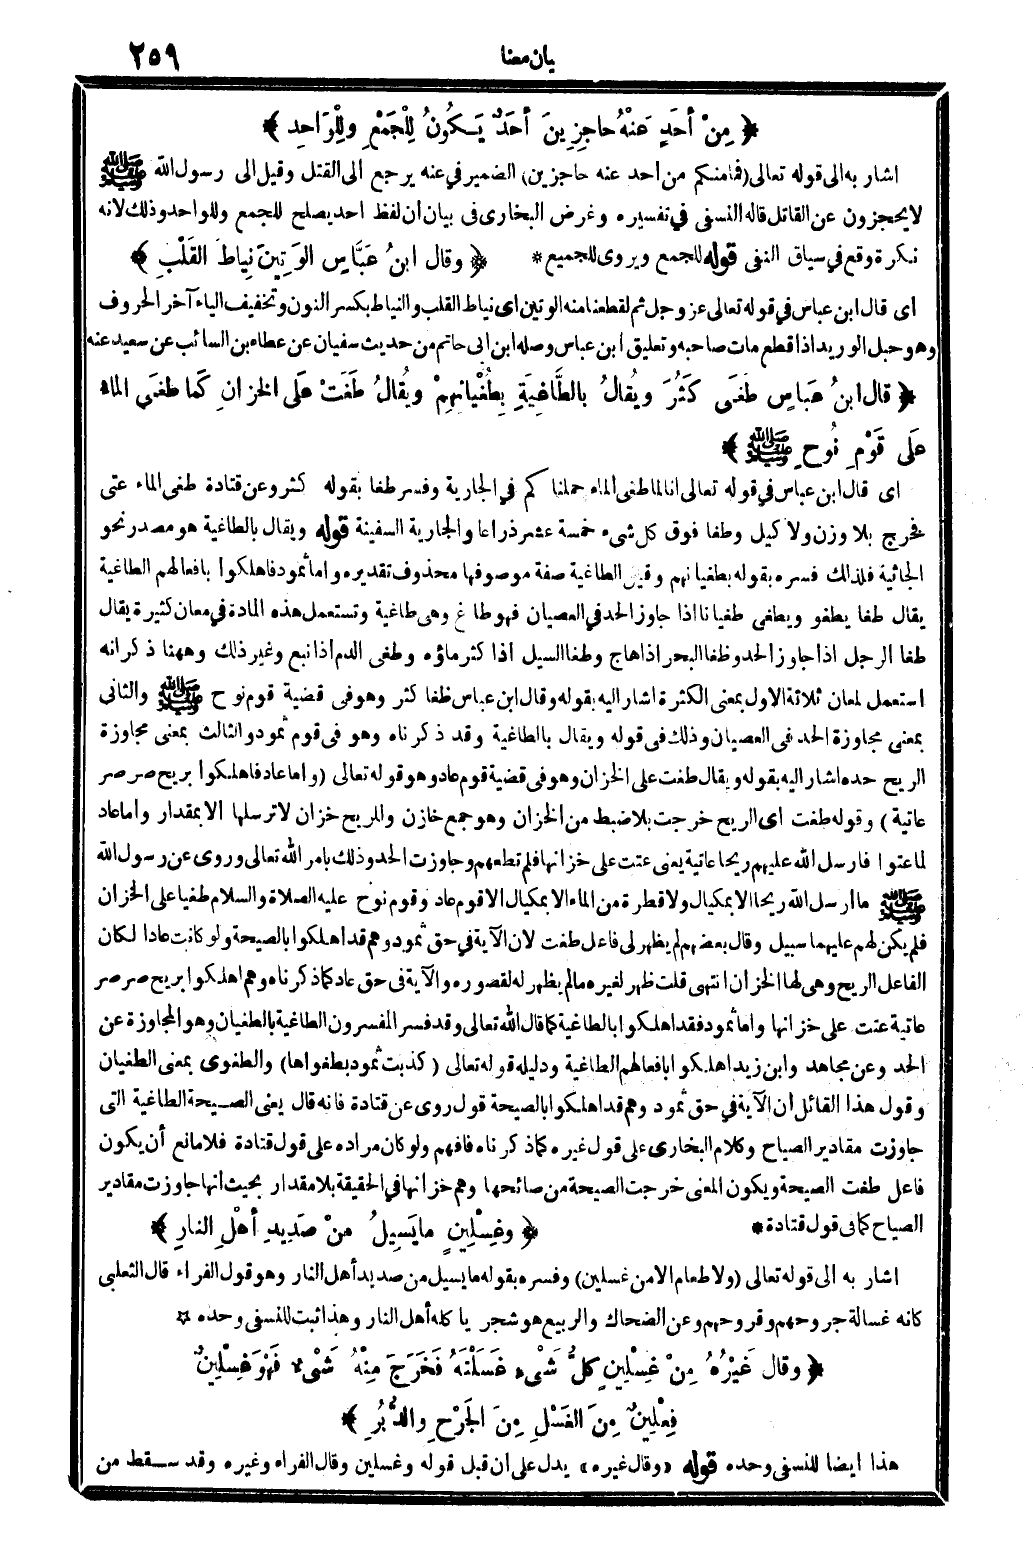 بيان معنا ٢٥٩
﴿ مِنْ أحَدٍ عَنْهُ حاجِزِينَ أحَدٌ يَكُونُ لِلْجَمْعِ ولِلْوَاحِدِ ﴾
اشار به الى قوله تعالى (فمامنكم من أحد عنه حاجزين) الضمير في عنه يرجع الى القتل وقيل الى رسول الله ﷺ
لا يحجزون عن القاتل قاله النسفى في تفسيره وغرض البخارى فى بيان أن لفظ احد يصلح للجمع وللواحد وذلك لانه
نكرة وقع في سياق النفى قوله للجمع ويروى للجميع * ﴿ وقال ابنُ عَبَّاسٍ الوَتِينَ نِياطَ القَلْبِ ﴾
اى قال ابن عباس في قوله تعالى عز وجل ثم لقطعنا منه الوتين اى نياط القلب والنياط بكسر النون وتخفيف الياء آخر الحروف
وهو حبل الوريد اذا قطع مات صاحبه وتعليق ابن عباس وصله ابن ابى حاتم من حديث سفيان عن عطاء بن السائب عن سعيد عنه
﴿ قال ابنُ عَبَّاسٍ طَغَى كَثُرَ ويُقالُ بالطَّاغِيَةِ بِطُغْيانِهِمْ ويُقالُ طَغَتْ عَلَى الخزانِ كَما طَغَى الماءُ
عَلَى قَوْمِ نُوحٍ ﷺ ﴾
اى قال ابن عباس في قوله تعالى انا لما طغى الماء حملنا كم في الجارية وفسر طغا بقوله كثر وعن قتادة طغى الماء عتى
فخرج بلا وزن ولا كيل وطغا فوق كل شىء خمسة عشر ذراعا والجارية السفينة قوله ويقال بالطاغية هو مصدر نحو
الجاثية فلذلك فسره بقوله بطغيانهم وقيل الطاغية صفة موصوفها محذوف تقديره واما ثمود فاهلكوا بافعالهم الطاغية
يقال طغا يطغو ويطغى طغيانا اذا جاوز الحد في العصيان فهو طاغ وهى طاغية وتستعمل هذه المادة في معان كثيرة يقال
طغا الرجل اذا جاوز الحد وطغا البحر اذا هاج وطغا السيل اذا كثر ماؤه وطغى الدم اذا نبع وغير ذلك وههنا ذكر انه
استعمل لمعان ثلاثة الاول بمعنى الكثرة اشار اليه بقوله وقال ابن عباس طغا كثر وهو فى قضية قوم نوح ﷺ والثانى
بمعنى مجاوزة الحد فى العصيان وذلك فى قوله ويقال بالطاغية وقد ذكرناه وهو فى قوم ثمود والثالث بمعنى مجاوزة
الريح حده اشار اليه بقوله ويقال طغت على الخزان وهو فى قضية قوم عاد وهو قوله تعالى (واما عاد فاهلكوا بريح صرصر
عاتية) وقوله طغت اى الريح خرجت بلا ضبط من الخزان وهو جمع خازن وللريح خزان لا ترسلها الا بمقدار واما عاد
لما عتوا فارسل الله عليهم ريحا عاتية يعنى عتت على خزانها فلم تطعهم وجاوزت الحد وذلك بامر الله تعالى وروى عن رسول الله
ﷺ ما أرسل الله ريحا الا بمكيال ولا قطرة من الماء الا بمكيال الا قوم عاد وقوم نوح عليه الصلاة والسلام طغيا على الخزان
فلم يكن لهم عليهما سبيل وقال بعضهم لم يظهر لى فاعل طغت لان الآية في حق ثمود وهم قد اهلكوا بالصيحة ولو كانت عادا لكان
الفاعل الريح وهى لها الخزان انتهى قلت ظهر لغيره ما لم يظهر له لقصوره والآية فى حق عاد كما ذكرناه وهم اهلكوا بريح صرصر
عاتية عتت على خزانها واما ثمود فقد اهلكوا بالطاغية كما قال الله تعالى وقد فسر المفسرون الطاغية بالطغيان وهو المجاوزة عن
الحد وعن مجاهد وابن زيد اهلكوا بافعالهم الطاغية ودليله قوله تعالى (كذبت ثمود بطغواها) والطغوى بمعنى الطغيان
وقول هذا القائل أن الآية في حق ثمود وهم قد اهلكوا بالصيحة قول روى عن قتادة فانه قال يعنى الصيحة الطاغية التى
جاوزت مقادير الصياح وكلام البخارى على قول غيره كما ذكرناه فافهم ولو كان مراده على قول قتادة فلا مانع أن يكون
فاعل طغت الصيحة ويكون المعنى خرجت الصيحة من صائحها وهم خزانها في الحقيقة بلا مقدار بحيث انها جاوزت مقادير
الصياح كما فى قول قتادة * ﴿ وغِسْلِينٍ ما يَسِيلُ مِنْ صَدِيدِ أهْلِ النارِ ﴾
اشار به الى قوله تعالى (ولا طعام الا من غسلين) وفسره بقوله ما يسيل من صديد أهل النار وهو قول الفراء قال الثعلبى
كانه غسالة جروحهم وقروحهم وعن الضحاك والربيع هو شجر يا كله أهل النار وهذا ثبت للنسفى وحده ☆
﴿ وقال غَيْرُهُ مِنْ غِسْلِينٍ كلُّ شَىْءٍ غَسَلْتَهُ فَخَرَجَ مِنْهُ شَىْءٌ فَهُوَ غِسْلِينٌ
فِعْلِينٌ مِنَ الغَسْلِ مِنَ الجَرْحِ والدُّبُرِ ﴾
هذا ايضا للنسفى وحده قوله «وقال غيره» يدل على ان قبل قوله وغسلين وقال الفراء وغيره وقد سقط من